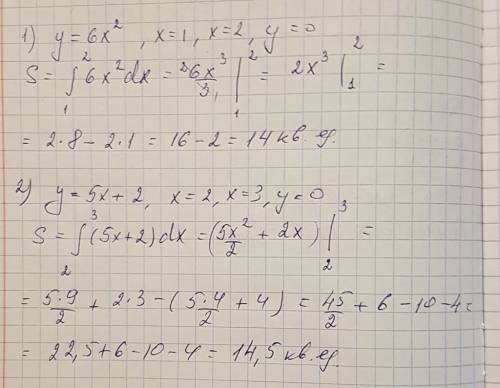 1) y = 6x², x=1, x=2, y=0
S = ∫₁² 6x²dx = ²6x³/3₁ |₁² = 2x³ |₁² =
= 2·8 - 2·1 = 16 - 2 = 14 кв. ед.
2) y = 5x + 2, x = 2, x = 3, y = 0
S = ∫₂³ (5x+2)dx = (5x²/2 + 2x) |₂³ =
= 5·9/2 + 2·3 - (5·4/2 + 4) = 45/2 + 6 - 10 - 4 =
= 22,5 + 6 - 10 - 4 = 14,5 кв. ед.